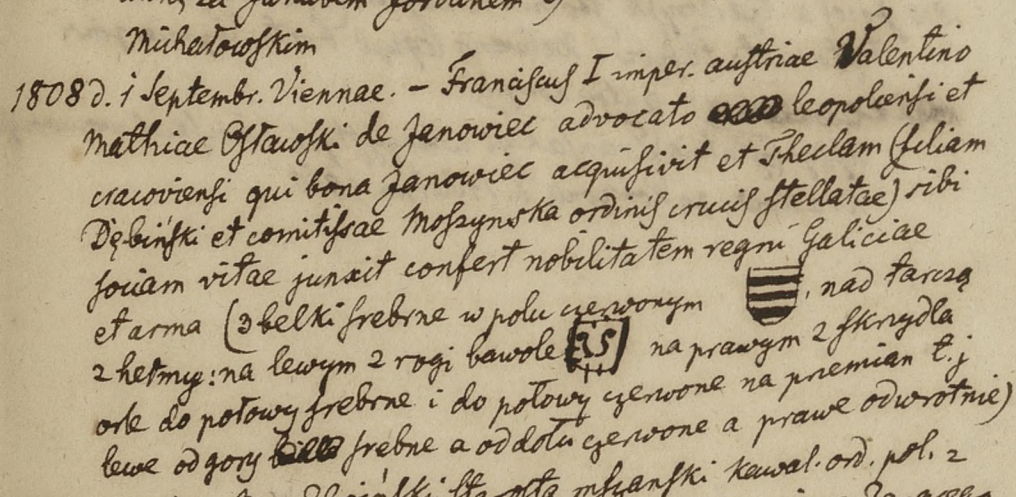 Jordanem)
Michałowskim
1808 d. 1 Septembr. Viennae. – Franciscus I imper. austriae Valentino
Mathiae Osławski de Janowiec advocato leopoliensi et
cracoviensi qui bona Janowiec acquisivit et Theclam (filiam
Dębiński et comitissae Moszynska ordinis crucis stellatae) sibi
sociam vitae junxit confert nobilitatem regni Galiciae
et arma (3 belki srebrne w polu czerwonym , nad tarczą
2 hełmy: na lewym 2 rogi bawole na prawym 2 skrzydła
orle do połowy srebrne i do połowy czerwone na przemian t. j
lewe od gory srebne a od dołu czerwone a prawe odwrotnie)
kawal. ord. pol. z